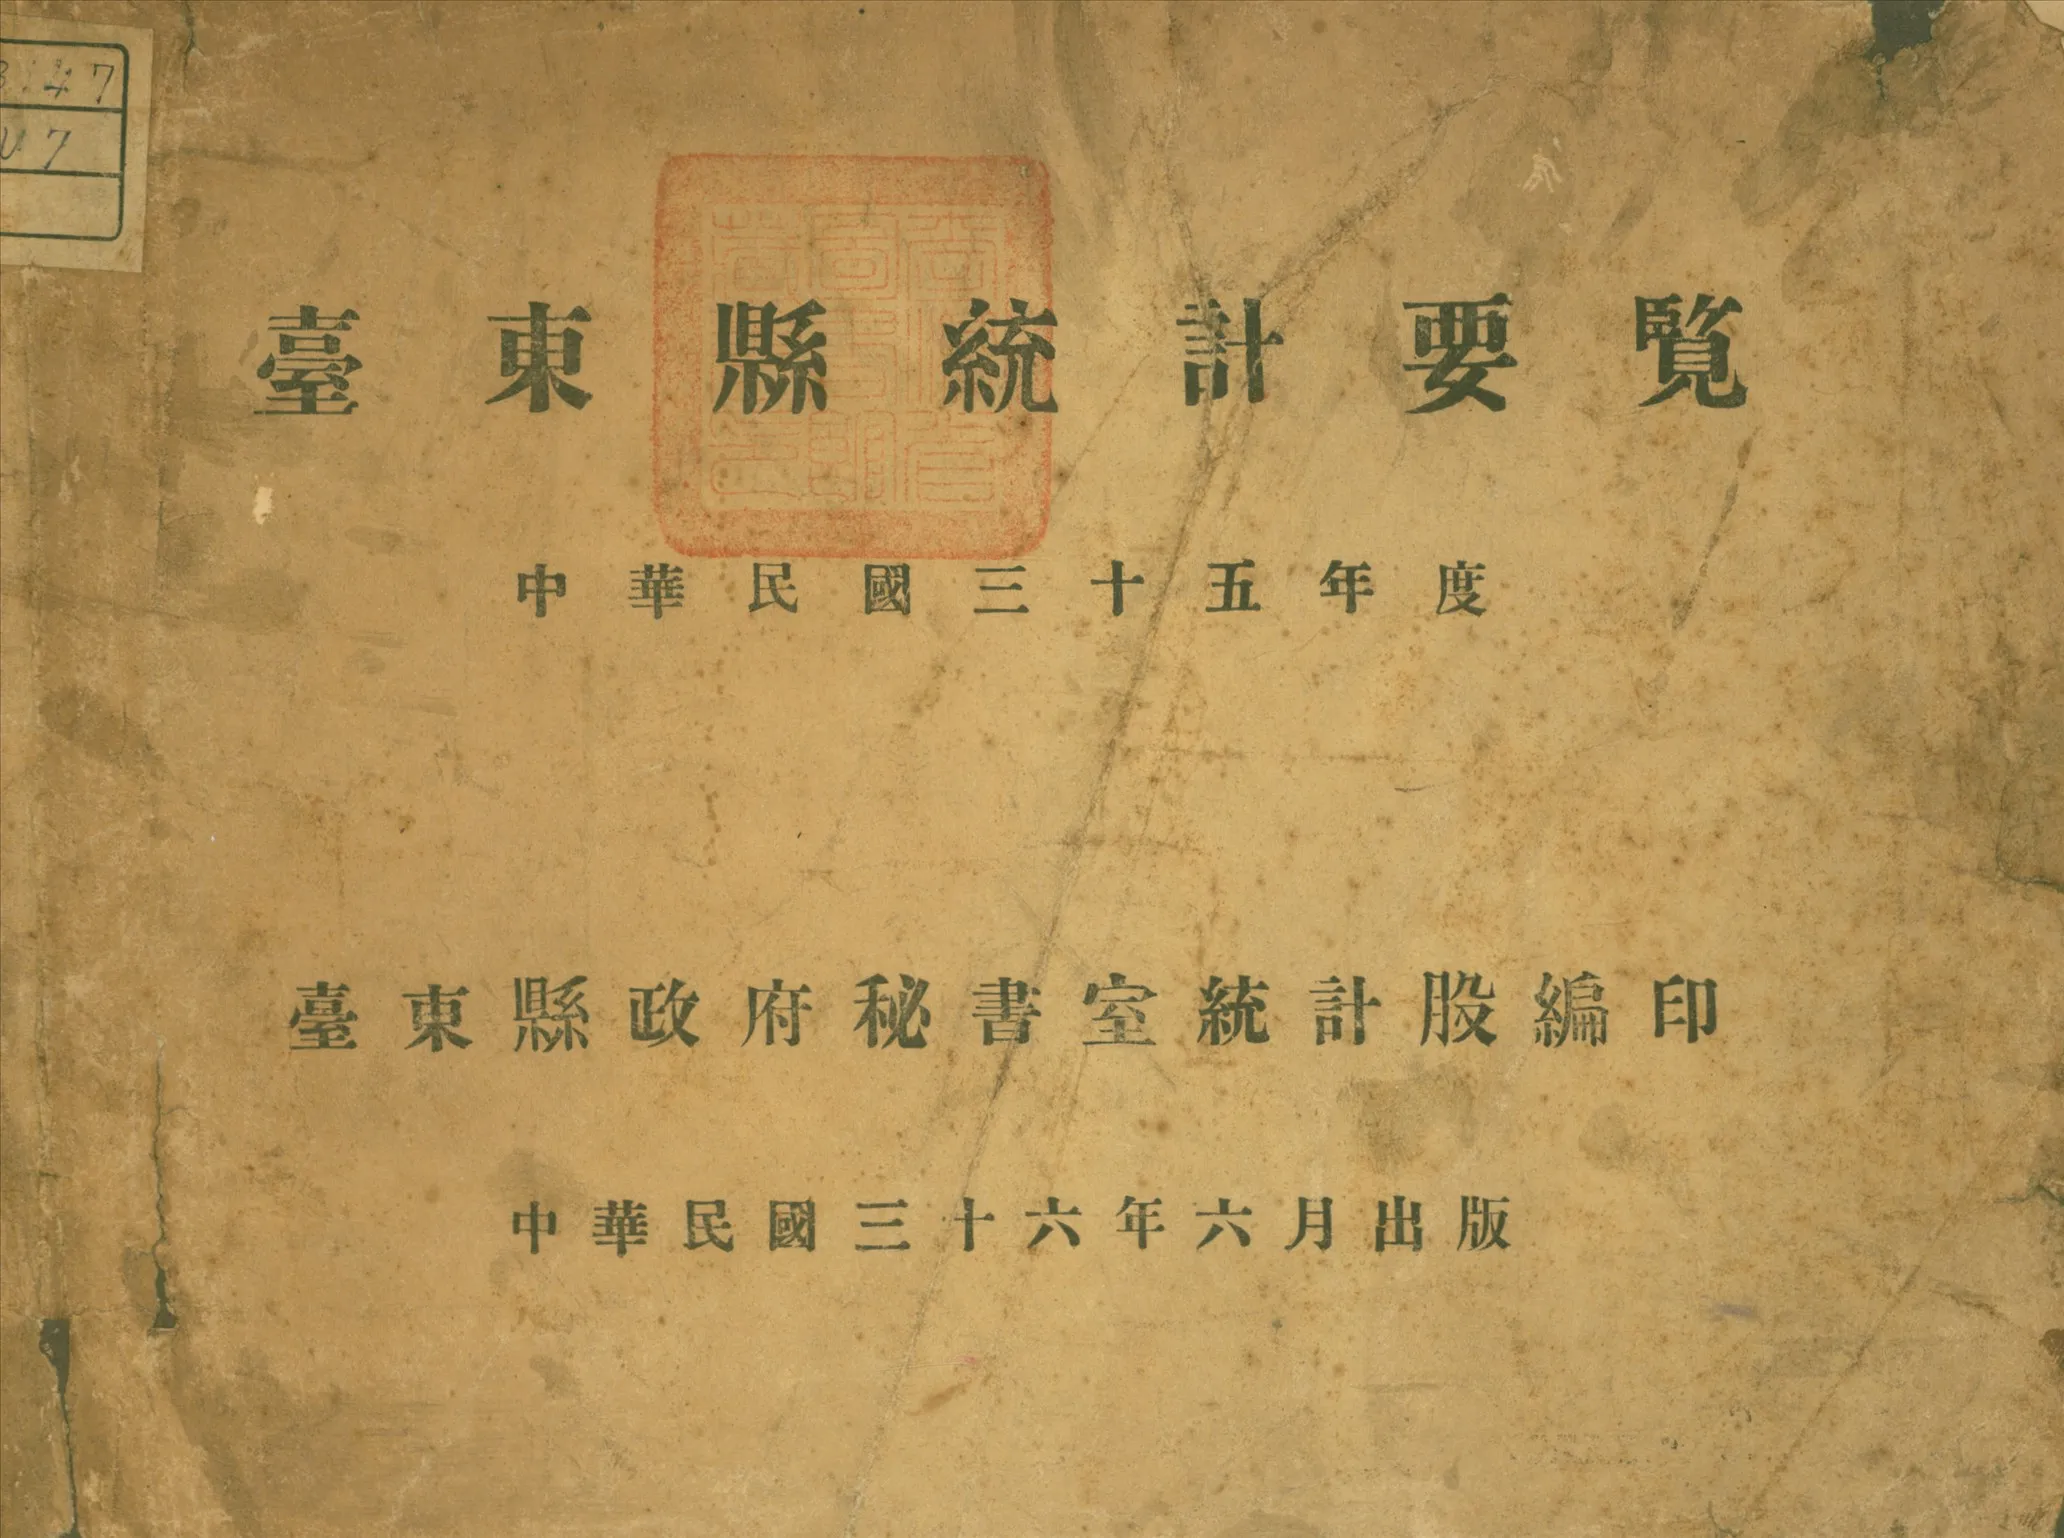 47
7
臺東縣統計要覽
中華民國三十五年度
臺東縣政府秘書室統計股編印
中華民國三十六年六月出版